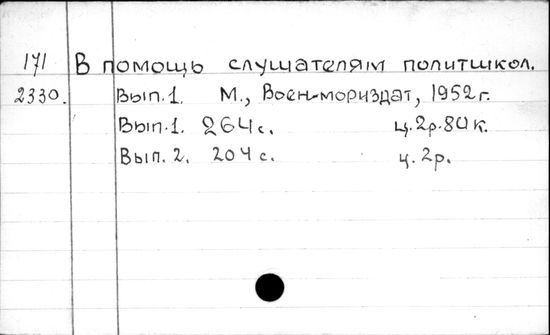 171 В помощь слушателям политшкол.
2330. Вып.1. М., Воен-мориздат, 1952г.
Вып.1. 264с. ц.2р.80к.
Вып.2. 204с. ц.2р.